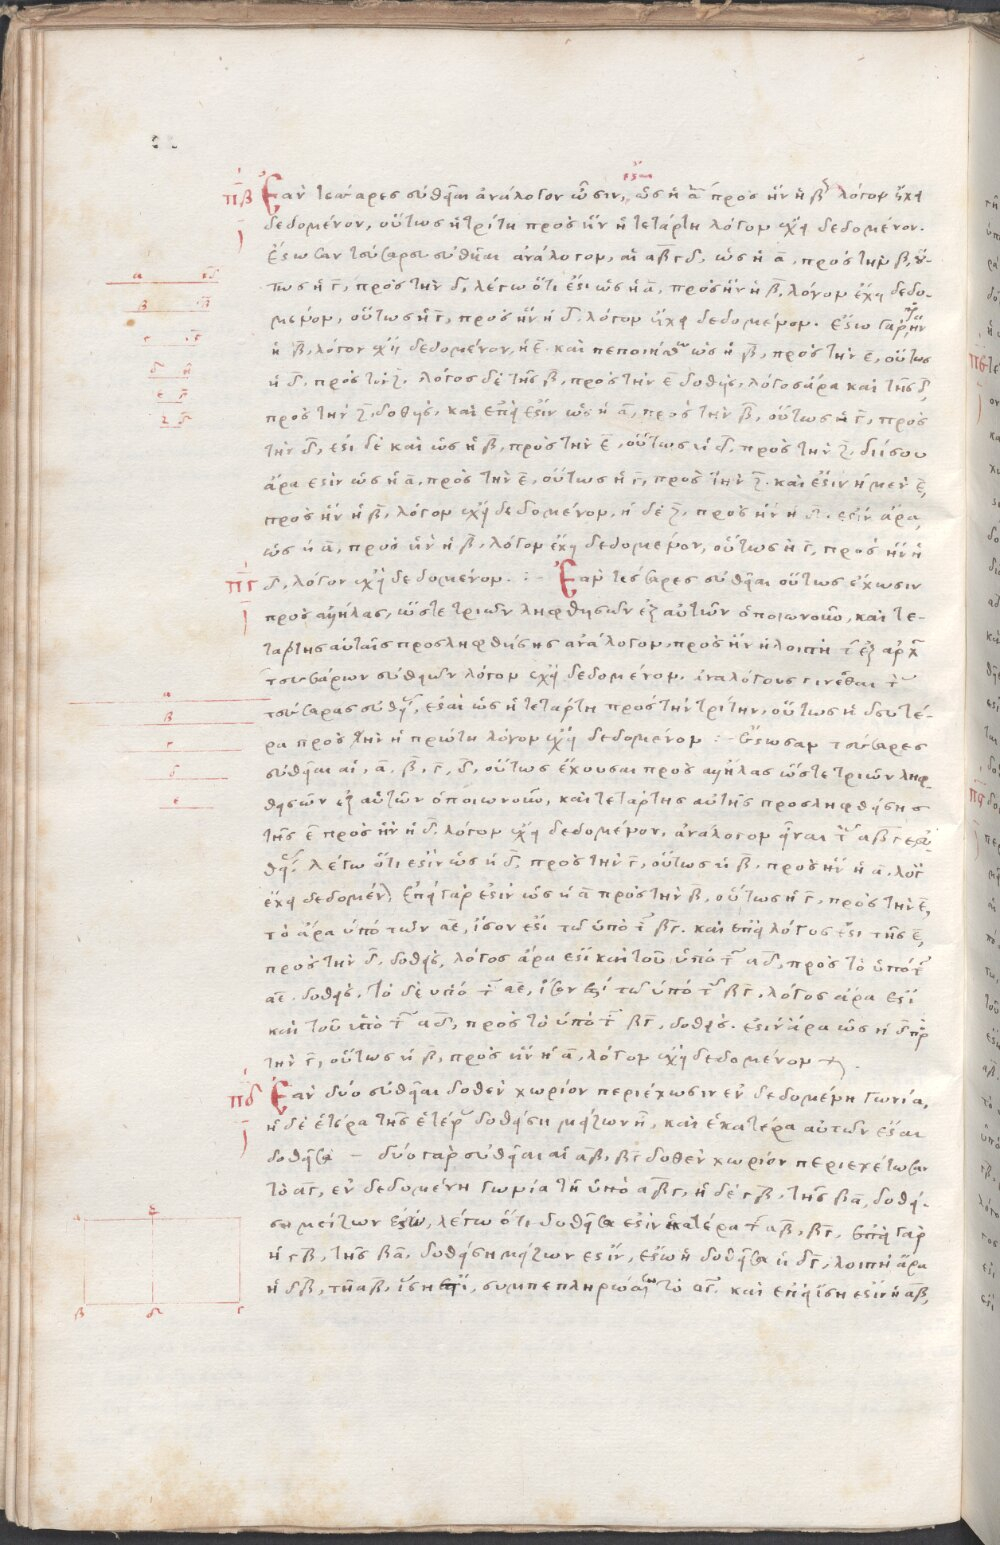 ἔσται
πβ Ἐὰν τέσσαρες εὐθεῖαι ἀνάλογον ὦσιν, ὡς ἡ ᾱ πρὸς ἣν ἡ β λόγον ἔχει
δεδομένον, οὕτως ἡ τρίτη πρὸς ἣν ἡ τετάρτη λόγον ἔχει δεδομένον.
ἔστωσαν τέσσαρες εὐθεῖαι ἀνάλογον, αἱ α̅β̅γ̅δ̅, ὡς ἡ ᾱ, πρὸς τὴν β̅, οὕ-
τως ἡ γ̅, πρὸς τὴν δ̅, λέγω ὅτι ἐστὶ ὡς ἡ ᾱ, πρὸς ἣν ἡ β̅, λόγον ἔχει δεδο-
μένον, οὕτως ἡ γ̅, πρὸς ἣν ἡ δ̅ λόγον ἔχει δεδομένον. ἔστω γὰρ, πρὸς ἣν
ἡ β̅, λόγον ἔχει δεδομένον, ἡ ε̅. καὶ πεποιήσθω ὡς ἡ β̅, πρὸς τὴν ε̅, οὕτως
ἡ δ̅. πρὸς τὴν ζ̅. λόγος δὲ τῆς β̅, πρὸς τὴν ε̅ δοθεὶς, λόγος ἄρα καὶ τῆς δ̅,
πρὸς τὴν ζ̅. δοθεὶς, καὶ ἐπεί ἐστιν ὡς ἡ ᾱ, πρὸς τὴν β̅, οὕτως ἡ γ̅, πρὸς
τὴν δ̅, ἐστὶ δὲ καὶ ὡς ἡ β̅, πρὸς τὴν ε̅, οὕτως ἡ δ̅, πρὸς τὴν ζ̅. διίσου
ἄρα ἐστὶν ὡς ἡ ᾱ, πρὸς τὴν ε̅, οὕτως ἡ γ̅, πρὸς τὴν ζ̅. καὶ ἔστιν ἡ μὲν ε̅,
πρὸς ἣν ἡ β̅, λόγον ἔχει δεδομένον, ἡ δὲ ζ̅, πρὸς ἣν ἡ δ̅. ἐστὶν ἄρα,
ὡς ἡ ᾱ, πρὸς ἣν ἡ β̅, λόγον ἔχει δεδομένον, οὕτως ἡ γ̅, πρὸς ἣν ἡ
πγ δ̅, λόγον ἔχει δεδομένον. :- Ἐὰν τέσσαρες εὐθεῖαι οὕτως ἔχωσιν
πρὸς ἀλλήλας, ὥστε τριῶν ληφθησῶν ἐξ αὐτῶν ὁποιωνοῦν, καὶ τε-
τάρτης αὐταῖς προσληφθείσης ἀνάλογον, πρὸς ἣν ἡ λοιπὴ τῶν ἐξ ἀρχῆς
τεσσάρων εὐθειῶν λόγον ἔχει δεδομένον, ἀναλόγους γίνεσθαι τὰς
τέσσαρας εὐθείας, ἔσται ὡς ἡ τετάρτη πρὸς τὴν τρίτην, οὕτως ἡ δευτέ-
ρα πρὸς ἣν ἡ πρώτη λόγον ἔχει δεδομένον :- ἔστωσαν τέσσαρες
εὐθεῖαι αἱ, ᾱ, β̅, γ̅, δ̅, οὕτως ἔχουσαι πρὸς ἀλλήλας ὥστε τριῶν ληφ-
θησῶν ἐξ αὐτῶν ὁποιωνοῦν, καὶ τετάρτης αὐτῆς προσληφθείσης
τῆς ε̅ πρὸς ἣν ἡ δ̅ λόγον ἔχει δεδομένον, ἀνάλογον εἶναι τὰς α̅β̅γ̅ε̅ εὐ-
θείας. λέγω ὅτι ἐστὶν ὡς ἡ δ̅, πρὸς τὴν γ̅, οὕτως ἡ β̅. πρὸς ἣν ἡ ᾱ. λόγον
ἔχει δεδομένον. ἐπεὶ γάρ ἐστιν ὡς ἡ ᾱ πρὸς τὴν β̅, οὕτως ἡ γ̅, πρὸς τὴν ε̅,
τὸ ἄρα ὑπὸ τῶν α̅ε̅, ἴσον ἐστὶ τῷ ὑπὸ τῶν β̅γ̅. καὶ ἐπεὶ λόγος ἐστὶ τῆς ε̅,
πρὸς τὴν δ̅. δοθεὶς, λόγος ἄρα ἐστὶ καὶ τοῦ ὑπὸ τῶν α̅δ̅, πρὸς τὸ ὑπὸ τῶν
α̅ε̅. δοθεὶς. τὸ δὲ ὑπὸ τῶν α̅ε̅, ἴσον ἐστί τῷ ὑπὸ τῶν β̅γ̅, λόγος ἄρα ἐστὶ
καὶ τοῦ ὑπὸ τῶν α̅δ̅, πρὸς τὸ ὑπὸ τῶν β̅γ̅, δοθεὶς. ἐστὶν ἄρα ὡς ἡ δ̅ πρὸς
τὴν γ̅, οὕτως ἡ β̅, πρὸς ἣν ἡ ᾱ, λόγον ἔχει δεδομένον
πδ Ἐὰν δύο εὐθεῖαι δοθὲν χωρίον περιέχωσιν ἐν δεδομένῃ γωνίᾳ,
ἡ δὲ ἑτέρα τῆς ἑτέρας δοθείσῃ μείζων ᾖ, καὶ ἑκατέρα αὐτῶν ἔσται
δοθεῖσα – δύο γὰρ εὐθεῖαι αἱ α̅β̅, β̅γ̅ δοθὲν χωρίον περιεχέτωσαν
τὸ α̅γ̅, ἐν δεδομένῃ γωνίᾳ τῇ ὑπὸ α̅β̅γ̅, ἡ δὲ γ̅β̅, τῆς β̅α̅, δοθεί-
σῃ μείζων ἔστω, λέγω ὅτι δοθεῖσα ἐστὶν ἑκατέρα τῶν α̅β̅, β̅γ̅, ἐπεὶ γὰρ
ἡ γ̅β̅, τῆς β̅α̅, δοθείσῃ μείζων ἐστὶν, ἔστω ἡ δοθεῖσα ἡ δ̅γ̅, λοιπὴ ἄρα
ἡ δ̅β̅, τῇ α̅β̅, ἴση ἐστί, συμπεπληρώσθω τὸ α̅γ̅. καὶ ἐπεὶ ἴση ἐστὶν ἡ α̅β̅,